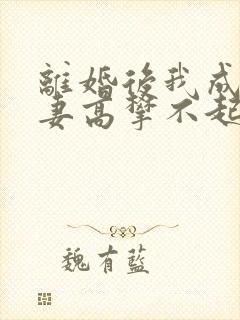 離婚後我成
妻高攀不起
魏有藍